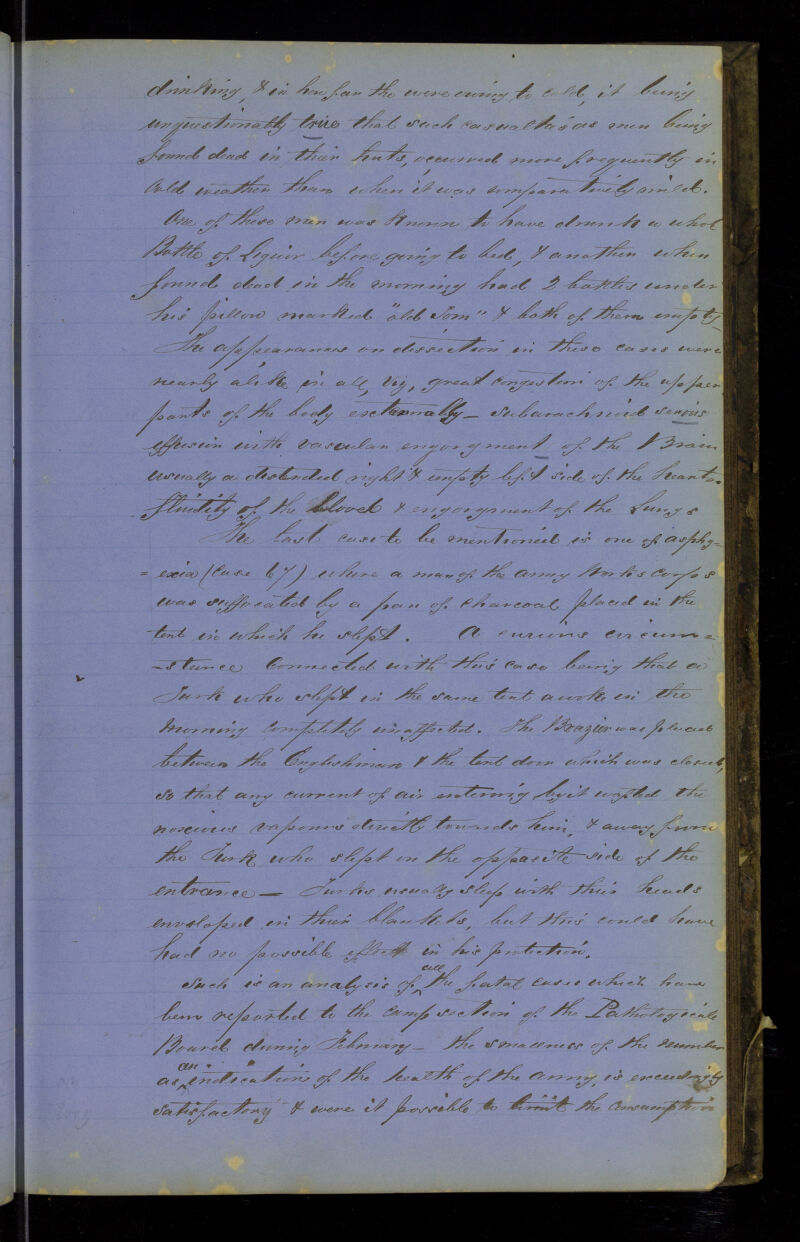 drinking, & in how far the were owing to cold, it being
unquestionably true that such casualties as men being
found dead in their tents, occurred more frequently in
cold weather than when it was comparatively mild.
One of these men was known to have drunk a whole
Bottle of Liquor before going to bed, & another when
found dead in the morning had 2 bottles under
his pillow marked "old Tom" & both of them empty
The appearances on dissection in these cases were
nearly alike in all, viz, great congestion of the upper
parts of the body externally – subarachnoid serous
effusion with vascular engorgment of the Brain
usually a distended right & empty left side of the heart –
fluidity of the blood & engorgment of the Lungs
The last case to be mentioned is one of asphy=
=exia (case 67) where a man of the army Works corps
was suffocated by a pan of charcoal placed in the
tent in which he slept. A curious circum=
=stance connected with this case being that a
Turk who slept in the same tent awoke in the
morning completely unaffected. The Brazier was placed
between the Englishman & the tent door which was closed,
so that any current of air entering by it wafted the
noxious vapours directly towards him, & away from
the Turk who slept on the opposite side of the
entrance – Turks usually sleep with their heads
enveloped in their blankets, but this could have
had no possible effect in his protection.
Such is an analysis of all the fatal cases which have
been reported to the camp section of the Pathological
Board during February – the smallness of the number
as an indication of the health of the army, is exceedingly
satisfactory & were it possible to limit the consumption